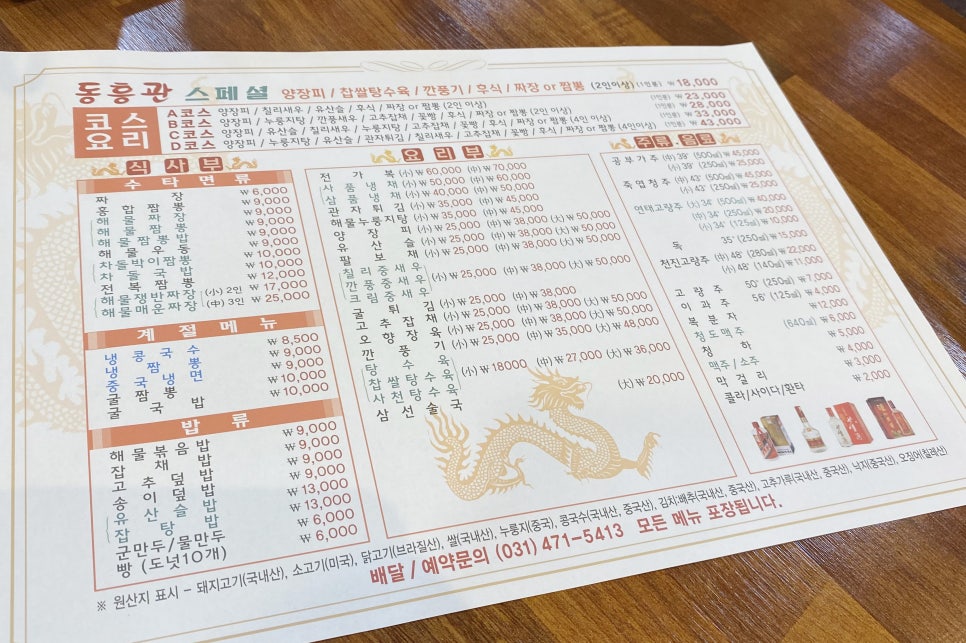 동흥관 스페셜 양장피 / 찹쌀탕수육 / 깐풍기 / 후식 / 짜장 or 짬뽕 (2인이상) (1인분) ₩18,000
코스요리
A코스 양장피 / 칠리새우 / 유산슬 / 후식 / 짜장 or 짬뽕 (2인이상) (1인분) ₩23,000
B코스 양장피 / 누룽지탕 / 깐풍새우 / 고추잡채 / 꽃빵 / 후식 / 짜장 or 짬뽕 (2인이상) (1인분) ₩28,000
C코스 양장피 / 유산슬 / 칠리새우 / 누룽지탕 / 고추잡채 / 꽃빵 / 후식 / 짜장 or 짬뽕 (4인이상) (1인분) ₩33,000
D코스 양장피 / 누룽지탕 / 유산슬 / 관자튀김 / 칠리새우 / 고추잡채 / 꽃빵 / 후식 / 짜장 or 짬뽕 (4인이상) (1인분) ₩43,000
식사부
수타면류
짜장 ₩6,000
홍합짬뽕 ₩9,000
해물짜장 ₩9,000
해물짬뽕 ₩9,000
해물짬뽕밥 ₩9,000
해물우동 ₩10,000
차돌박이짬뽕 ₩10,000
전복짬뽕 ₩12,000
해물쟁반짜장 (小) 2인 ₩17,000
해물매운짜장 (中) 3인 ₩25,000
계절메뉴
냉콩국수 ₩8,500
냉짬뽕 ₩9,000
중국냉면 ₩10,000
굴짬뽕 ₩10,000
굴국밥
밥류
해물볶음밥 ₩9,000
잡채밥 ₩9,000
고추덮밥 ₩9,000
송이덮밥 ₩13,000
유산슬밥 ₩13,000
잡탕밥
군만두/물만두 ₩6,000
빵 (도넛10개) ₩6,000
요리부
전가복 (小)₩60,000 (中)₩70,000
사품냉채 (小)₩50,000 (中)₩60,000
삼품냉채 (小)₩40,000 (中)₩50,000
관자튀김 (小)₩35,000 (中)₩45,000
해물누룽지탕 (小)₩35,000 (中)₩45,000
양장피 (小)₩25,000 (中)₩38,000 (大)₩50,000
유산슬 (小)₩25,000 (中)₩38,000 (大)₩50,000
팔보채
칠리중새우
깐풍중새우 (小)₩25,000 (中)₩38,000 (大)₩50,000
크림중새우
굴튀김 (小)₩25,000 (中)₩38,000
고추잡채 (小)₩25,000 (中)₩38,000 (大)₩50,000
오향장육 (小)₩25,000 (中)₩38,000 (大)₩50,000
깐풍기 (小)₩25,000 (中)₩35,000 (大)₩48,000
탕수육
찹쌀탕수육 (小)₩18000 (中)₩27,000 (大)₩36,000
사천탕수육
삼선술국 (大)₩20,000
주류.음료
공부가주 (中) 39˚ (500㎖) ₩45,000
(小) 39˚ (250㎖) ₩25,000
죽엽청주 (中) 43˚ (500㎖) ₩45,000
(小) 43˚ (250㎖) ₩25,000
연태고량주 (大) 34˚ (500㎖) ₩40,000
(中) 34˚ (250㎖) ₩20,000
(小) 34˚ (125㎖) ₩10,000
35˚ (250㎖) ₩15,000
천진고량주 (中) 48˚ (280㎖) ₩22,000
(小) 48˚ (140㎖) ₩11,000
고량주 50˚ (250㎖) ₩7,000
이과주 56˚ (125㎖) ₩4,000
복분자 ₩12,000
청도맥주 (640㎖) ₩6,000
청하 ₩5,000
맥주/소주 ₩4,000
막걸리 ₩3,000
콜라/사이다/환타 ₩2,000
※ 원산지 표시 - 돼지고기(국내산), 소고기(미국), 닭고기(브라질산), 쌀(국내산), 누룽지(중국), 콩국수(국내산, 중국산), 김치:배추(국내산, 중국산), 고추가루(국내산, 중국산), 낙지(중국산), 오징어(칠레산)
배달 / 예약문의 (031) 471-5413 모든 메뉴 포장됩니다.